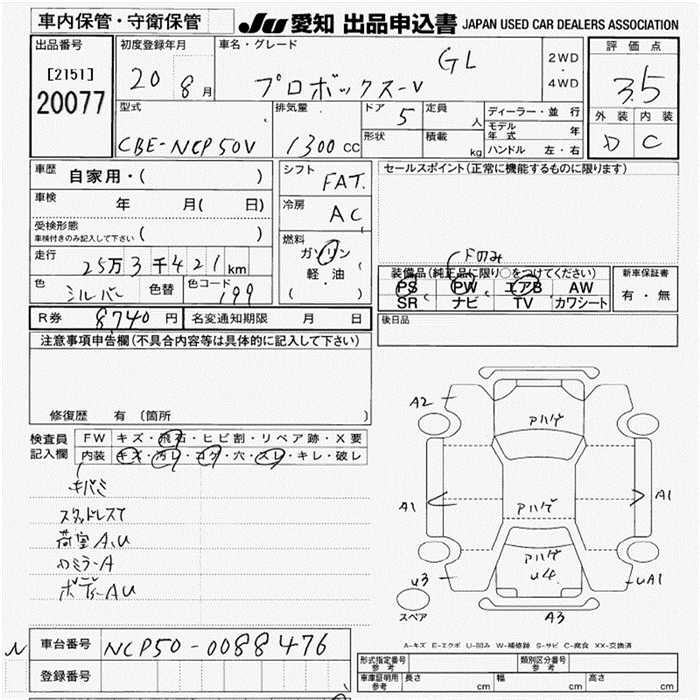 車内保管・守衛保管
JU 愛知 出品申込書 JAPAN USED CAR DEALERS ASSOCIATION
出品番号 [2151] 20077
初度登録年月 20 8月
車名・グレード プロボックス-V GL
2WD・4WD
評価点 3.5
外装 D 内装 C
型式 CBE-NCP50V
排気量 1300 CC
ドア 5 定員 人
形状 積載 kg
ディーラー・並行
モデル年式 年
ハンドル 左・右
車歴 自家用・( )
車検 年 月( 日)
受検形態
車検付きのみ記入して下さい ( )
走行 25万3千421km
色 シルバー 色替 色コード 199
シフト FAT.
冷房 AC
燃料 ガソリン
軽・油
( )
セールスポイント(正常に機能するものに限ります)
Fのみ
装備品(純正品に限り○をつけてください)
PS PW エアB AW
SR ナビ TV カワシート
新車保証書
有・無
R券 8740円 名変通知期限 月 日
後日品
注意事項申告欄(不具合内容等は具体的に記入して下さい)
修復歴 有(箇所 )
検査員記入欄
FW キズ・飛石・ヒビ割・リペア跡・X要
内装 キズ・汚レ・コゲ・穴・スレ・キレ・破レ
キバミ
スタッドレスT
荷室A.U
ルミラーA
ボディーAU
A2
アハゲ
A1
アハゲ
A1
アハゲ
U3
U4
UA1
スペア
A3
A-キズ E-エクボ U-凹み W-補修跡 S-サビ C-腐食 XX-交換済
N 車台番号 NCP50-0088476
登録番号
形式指定番号 参考 類別区分番号 参考
車庫証明用 参考 長さ cm 幅 cm 高さ cm